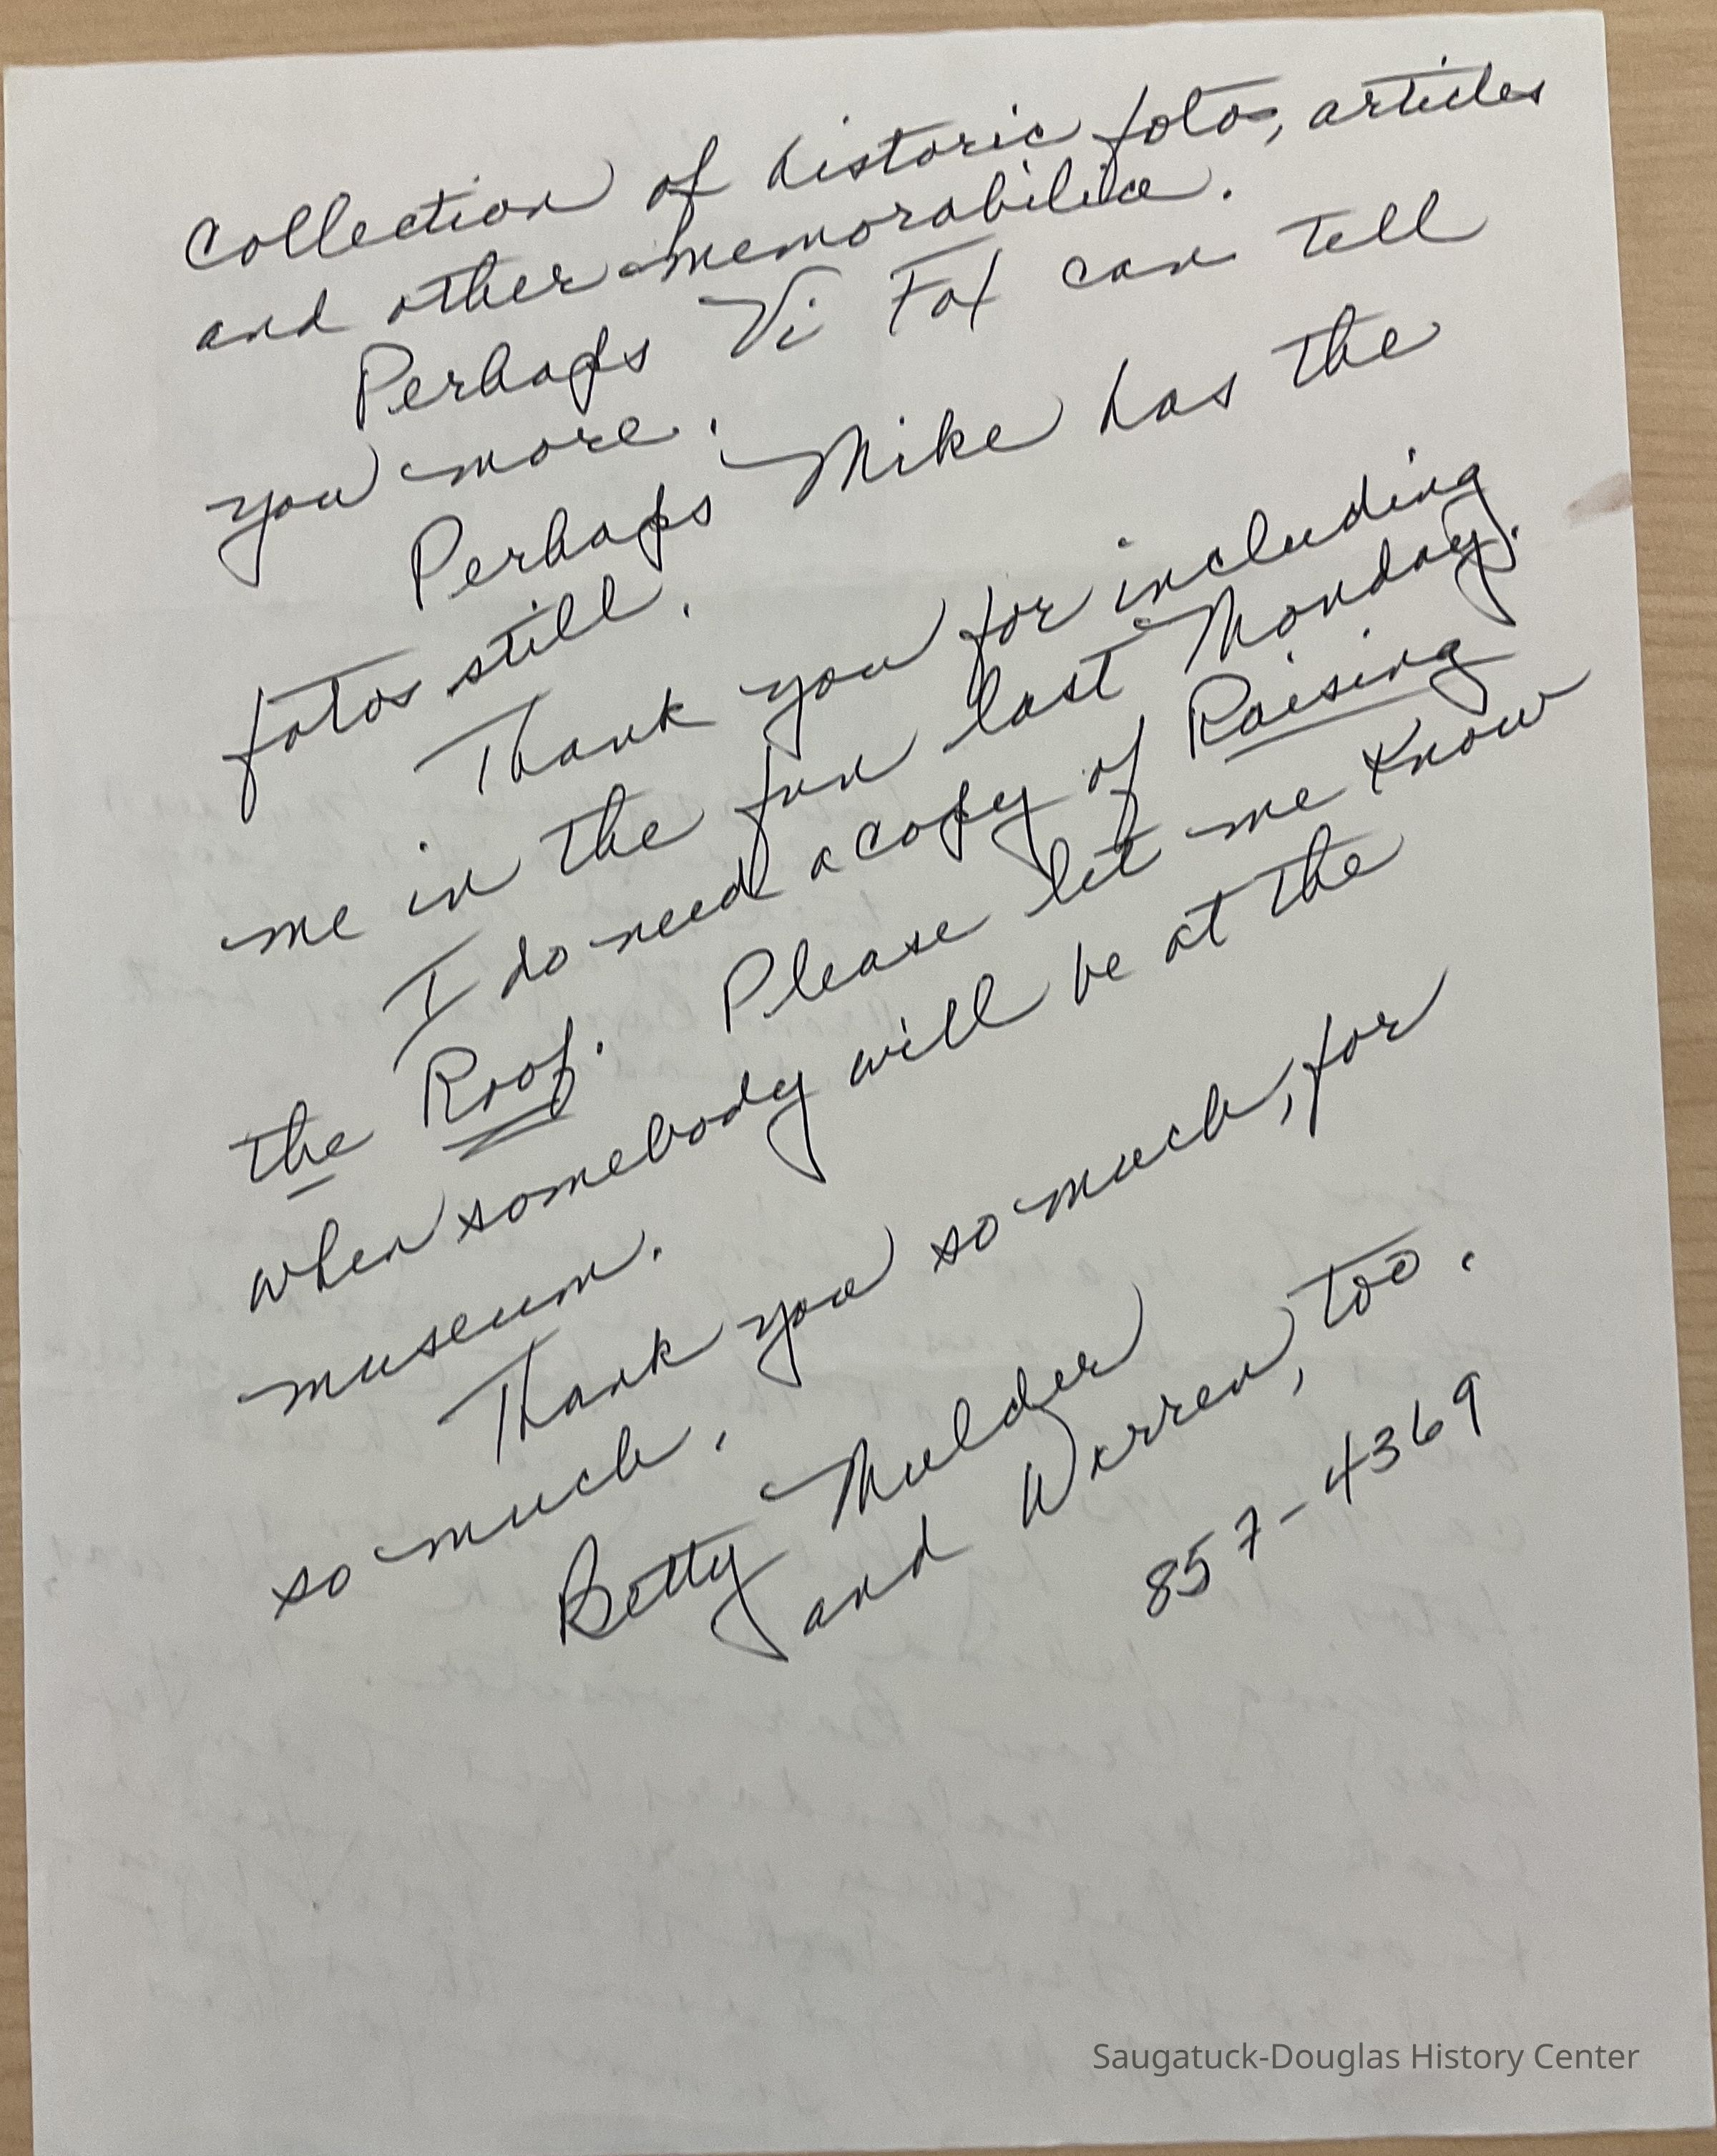 Collection of historic fotos, articles
and other memorabilia.
Perhaps Vi Fox can tell
you more.
Perhaps Mike has the
fotos still.
Thank you for including
me in the fun last Monday.
I do need a copy of Raising
the Roof. Please let me know
when somebody will be at the
museum.
Thank you so much, for
so much.
Betty Mulder
and Warren, too.
857-4369
Saugatuck-Douglas History Center